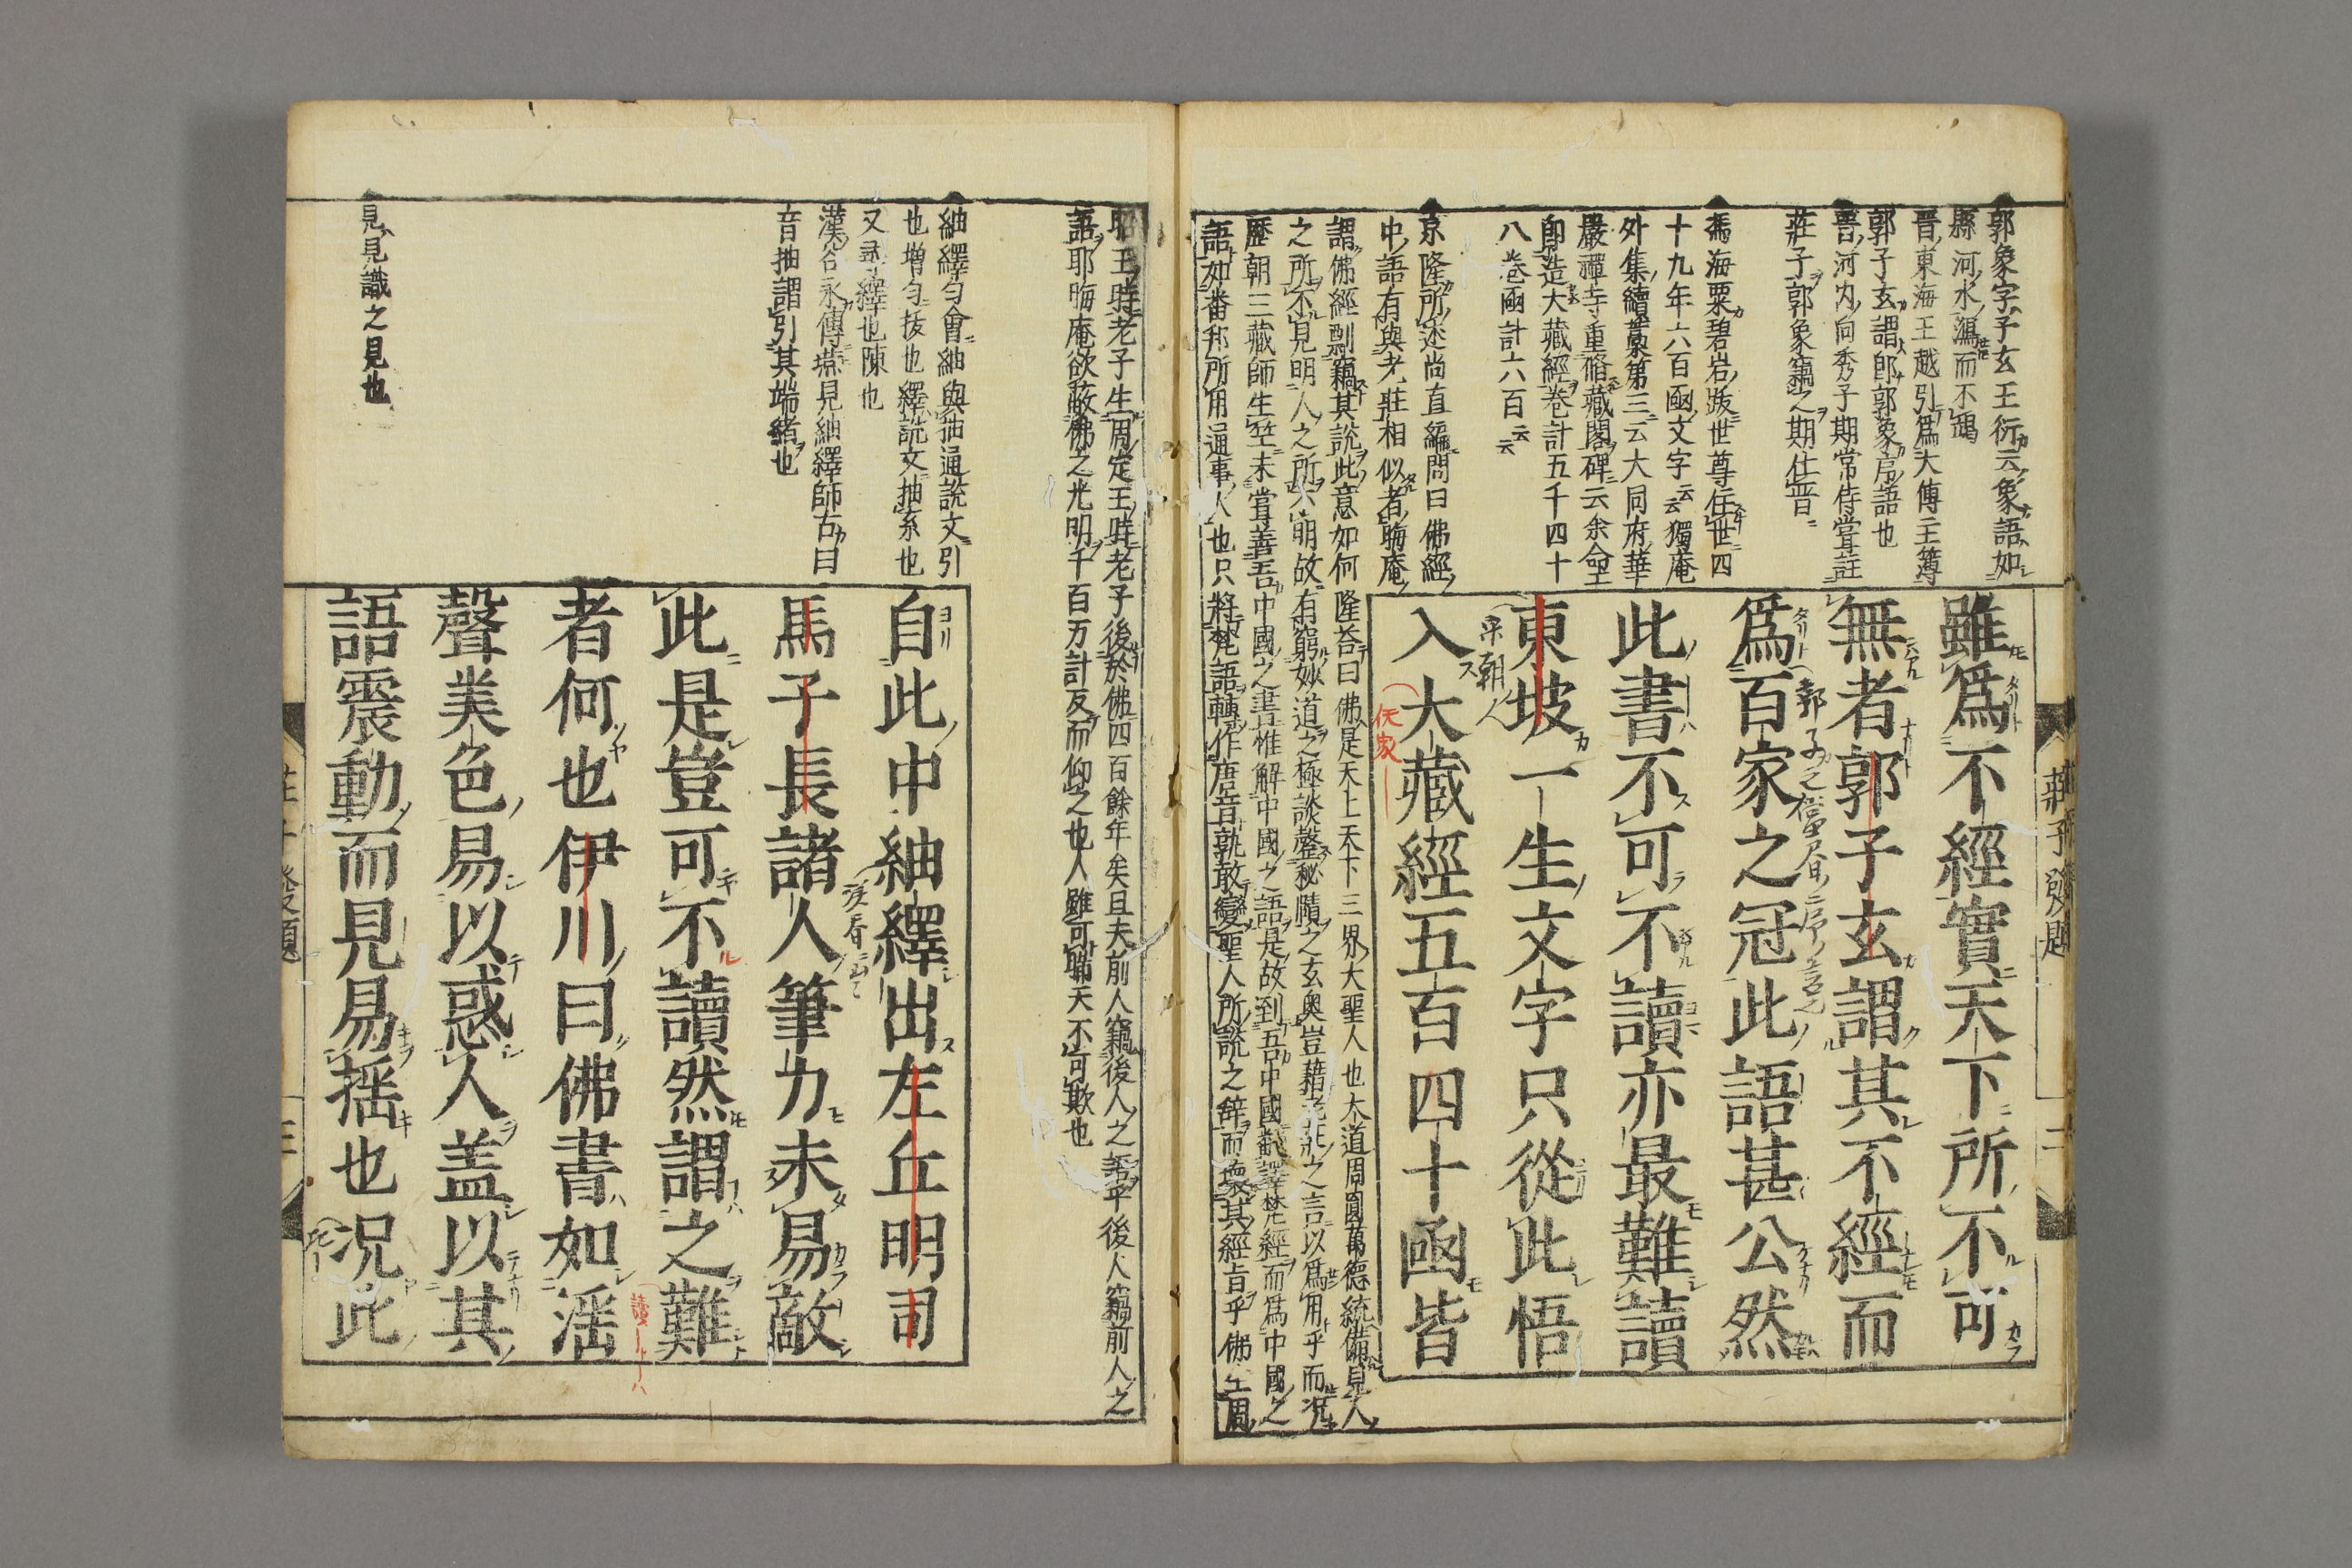 郭象字子玄王衍云象語如
縣河水瀉而不竭
晋東海王越引為大傅主簿
郭子玄謂即郭象序語也
晋河内向秀子期常侍嘗註
荘子郭象竊之期仕晋
馮海粟碧岩跋世尊住世四
十九年六百凾文字云云獨庵
外集續藁第三云大同府華
嚴禪寺重脩藏閣碑云余命工
印造大藏經巻計五千四十
八巻凾計六百云云
京隆所述尚直編問曰佛經
中語有與老莊相似者晦庵
謂佛經剽竊其說此意如何隆荅曰佛是天上天下三界大聖人也大道周圓萬德統備見人
之所不見明人之所不明故有窮妙道之極談罄秘賾之玄奥豈藉老莊之言以為用乎而况
歷朝三藏師生竺未嘗善吾中國之書惟解中國之語是故到吾中國飜譯梵經而為中國之
語如番邦所用通事人也只將梵語轉作唐音孰敢變聖人所說之辭而壞其經旨乎佛生周
雖爲不經實天下所不可
無者郭子玄謂其不經而
爲百家之冠此語甚公然
此書不可不讀亦最難讀
東坡一生文字只從此悟
宋朝人
入大藏經五百四十凾皆
莊子發題
二
昭王時老子生周定王時老子後於佛四百餘年矣且夫前人竊後人之語乎後人竊前人之
語耶晦庵欲蔽佛之光明千百万計反而仰之也人雖可瞞天不可欺也
紬繹勻會紬與抽通說文引
也増勻抜也繹說文抽糸也
又尋繹也陳也
漢谷永傳燕見紬繹師古曰
音抽謂引其端緒也
見見識之見也
自此中紬繹出左丘明司
馬子長諸人筆力未易敵
此是豈可不讀然謂之難
者何也伊川曰佛書如滛
聲美色易以惑人盖以其
語震動而見易揺也况此
莊子發題
三